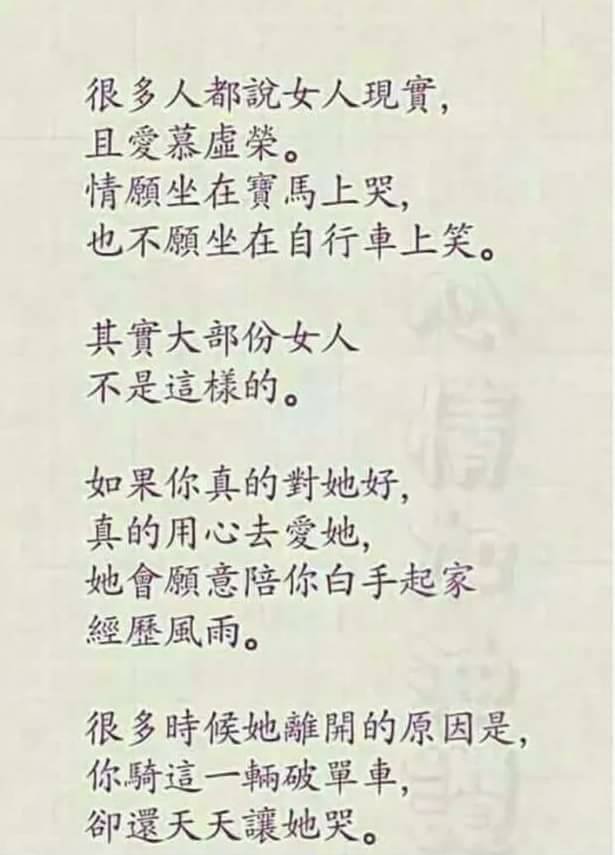 很多人都說女人現實，
且愛慕虛榮。
情願坐在寶馬上哭，
也不願坐在自行車上笑。
其實大部份女人
不是這樣的。
如果你真的對她好，
真的用心去愛她，
她會願意陪你白手起家
經歷風雨。
很多時候她離開的原因是，
你騎這一輛破單車，
卻還天天讓她哭。